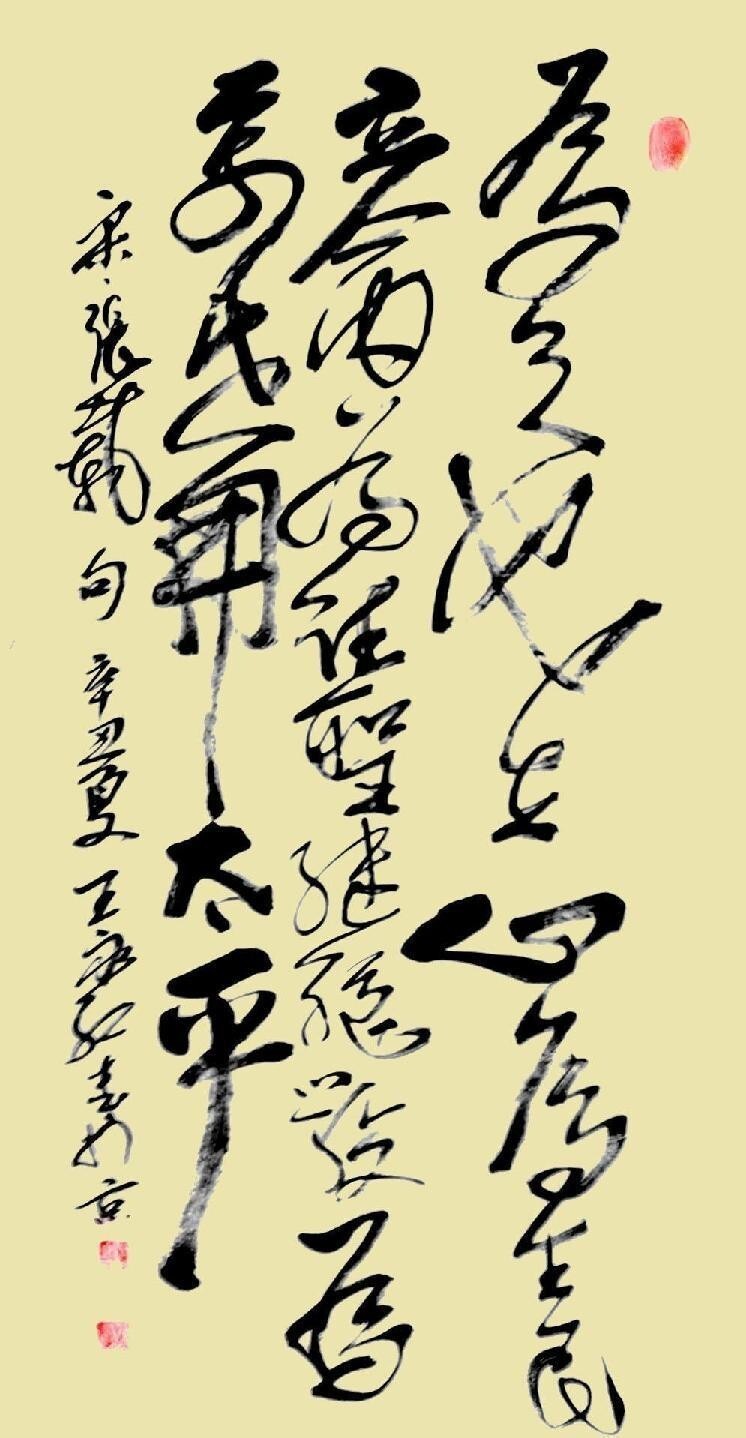 為天地立心為生民
立命為往聖繼絕學為
萬世開太平
宋·張載句 辛丑夏 王 書於京